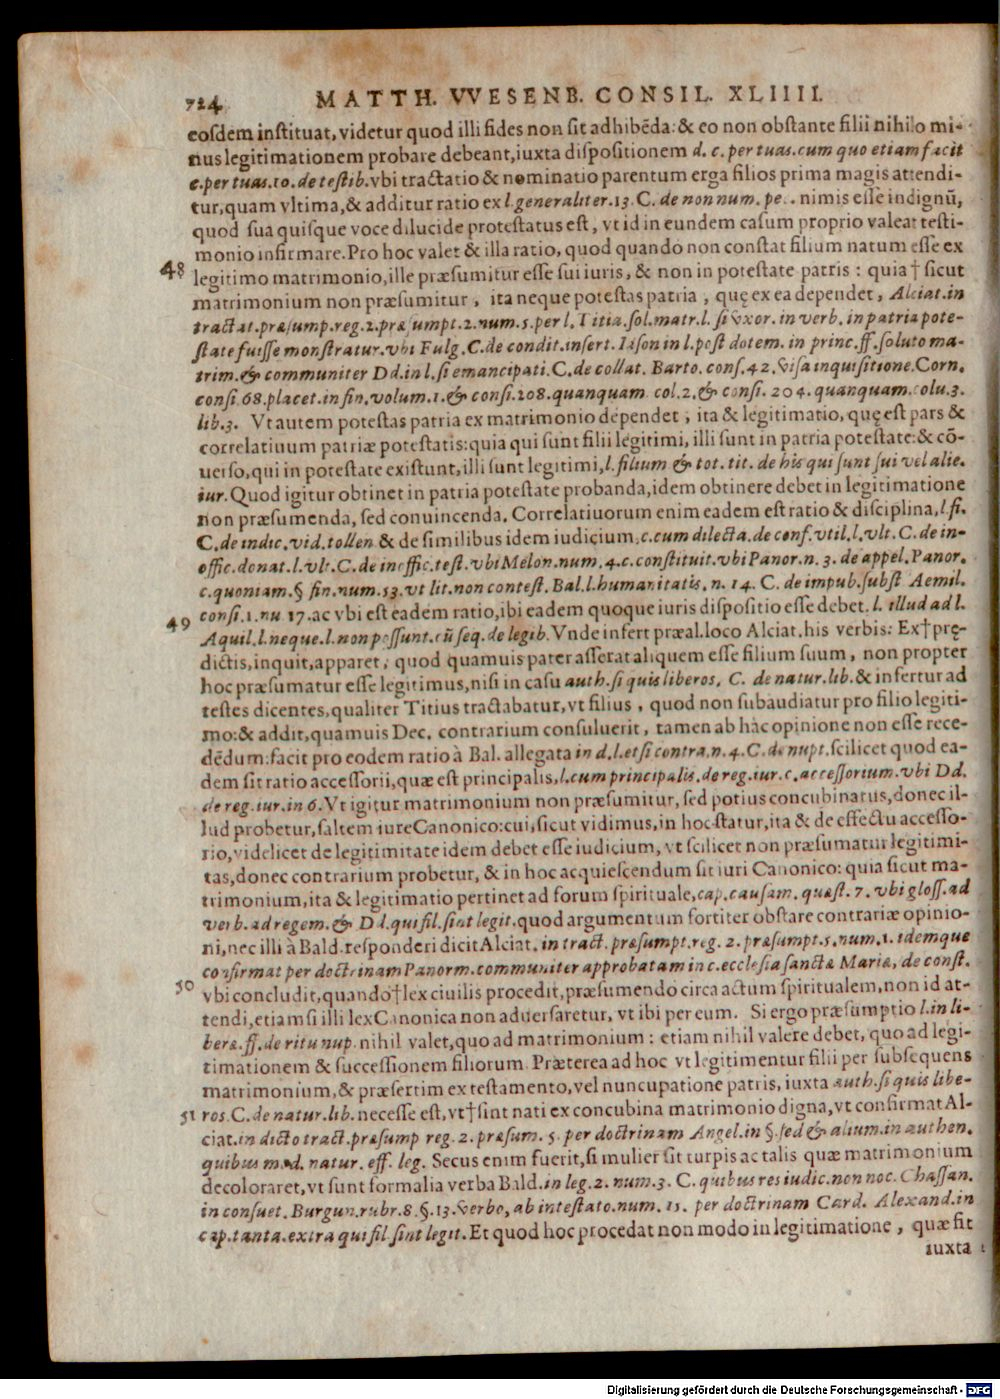 724 MATTH. VVESENB. CONSIL. XLIIII.
eosdem instituat, videtur quod illi fides non sit adhibēda: & eo non obstante filii nihilo mi-
nus legitimationem probare debeant, iuxta dispositionem d. c. per tuas. cum quo etiam facit
c. per tuas. 10. de testib. vbi tractatio & nominatio parentum erga filios prima magis attendi-
tur, quam vltima, & additur ratio ex l. generaliter. 13. C. de non num. pec. nimis esse indignū,
quod sua quisque voce dilucide protestatus est, vt id in eundem casum proprio valeat testi-
monio infirmare. Pro hoc valet & illa ratio, quod quando non constat filium natum esse ex
48 legitimo matrimonio, ille præsumitur esse sui iuris, & non in potestate patris: quia † sicut
matrimonium non præsumitur, ita neque potestas patria, quę ex ea dependet, Alciat. in
tractat. præsump. reg. 2. præsumpt. 2. num. 5. per l. Titia. sol. matr. l. si vxor. in verb. in patria pote-
state fuisse monstratur. vbi Fulg. C. de condit. insert. Iason in l. post dotem. in princ. ff. soluto ma-
trim. & communiter Dd. in l. si emancipati. C. de collat. Barto. cons. 42. visa inquisitione. Corn.
consi. 68. placet. in fin. volum. 1. & consi. 208. quanquam col. 2. & consi. 204. quanquam. colu. 3.
lib. 3. Vt autem potestas patria ex matrimonio dependet, ita & legitimatio, quę est pars &
correlatiuum patriæ potestatis: quia qui sunt filii legitimi, illi sunt in patria potestate: & cō-
uerso, qui in potestate existunt, illi sunt legitimi, l. filium & tot. tit. de his qui sunt sui vel alie.
iur. Quod igitur obtinet in patria potestate probanda, idem obtinere debet in legitimatione
non præsumenda, sed conuincenda. Correlatiuorum enim eadem est ratio & disciplina, l. fi.
C. de indic. vid. tollen. & de similibus idem iudicium, c. cum dilecta. de conf. vtil. l. vlt. C. de in-
offic. donat. l. vlt. C. de inoffic. test. vbi Melon. num. 4. c. constituit. vbi Panor. n. 3. de appel. Panor.
c. quoniam. § fin. num. 53. vt lit. non contest. Bal. l. humanitatis. n. 14. C. de impub. subst Aemil.
consi. 1. nu. 17. ac vbi est eadem ratio, ibi eadem quoque iuris dispositio esse debet. l. illud ad l.
49 Aquil. l. neque. l. non possunt. cū seq. de legib. Vnde infert præal. loco Alciat. his verbis: Ex † prę-
dictis, inquit, apparet, quod quamuis pater asserat aliquem esse filium suum, non propter
hoc præsumatur esse legitimus, nisi in casu auth. si quis liberos, C. de natur. lib. & infertur ad
testes dicentes, qualiter Titius tractabatur, vt filius, quod non subaudiatur pro filio legiti-
mo: & addit, quamuis Dec. contrarium consuluerit, tamen ab hac opinione non esse rece-
dēdum: facit pro eodem ratio à Bal. allegata in d. l. etsi contra. n. 4. C. de nupt. scilicet quod ea-
dem sit ratio accessorii, quæ est principalis, l. cum principalis. de reg. iur. c. accessorium. vbi Dd.
de reg. iur. in 6. Vt igitur matrimonium non præsumitur, sed potius concubinatus, donec il-
lud probetur, saltem iure Canonico: cui, sicut vidimus, in hoc statur, ita & de effectu accesso-
rio, videlicet de legitimitate idem debet esse iudicium, vt scilicet non præsumatur legitimi-
tas, donec contrarium probetur, & in hoc acquiescendum sit iuri Canonico: quia sicut ma-
trimonium, ita & legitimatio pertinet ad forum spirituale, cap. causam. quæst. 7. vbi gloss. ad
verb. ad regem. & Dd. qui fil. sint legit. quod argumentum fortiter obstare contrariæ opinio-
ni, nec illi à Bald. responderi dicit Alciat. in tract. præsumpt. reg. 2. præsumpt. 5. num. 1. idemque
confirmat per doctrinam Panorm. communiter approbatam in c. ecclesia sanctæ Mariæ, de const.
50 vbi concludit, quando † lex ciuilis procedit, præsumendo circa actum spiritualem, non id at-
tendi, etiamsi illi lex Canonica non aduersaretur, vt ibi per eum. Si ergo præsumptio l. in li-
beræ. ff. de ritu nup. nihil valet, quo ad matrimonium: etiam nihil valere debet, quo ad legi-
timationem & successionem filiorum. Præterea ad hoc vt legitimentur filii per subsequens
matrimonium, & præsertim ex testamento, vel nuncupatione patris, iuxta auth. si quis libe-
51 ros. C. de natur. lib. necesse est, vt † sint nati ex concubina matrimonio digna, vt confirmat Al-
ciat. in dicto tract. præsump reg. 2. præsum. 5. per doctrinam Angel. in §. sed & alium. in authen.
quibus mod. natur. eff. leg. Secus enim fuerit, si mulier sit turpis ac talis quæ matrimonium
decoloraret, vt sunt formalia verba Bald. in leg. 2. num. 3. C. quibus res iudic. non noc. Chassan.
in consuet. Burgun. rubr. 8. §. 13. verbo, ab intestato. num. 15. per doctrinam Card. Alexand. in
cap. tanta. extra qui fil. sint legit. Et quod hoc procedat non modo in legitimatione, quæ fit
iuxta
Digitalisierung gefördert durch die Deutsche Forschungsgemeinschaft - DFG